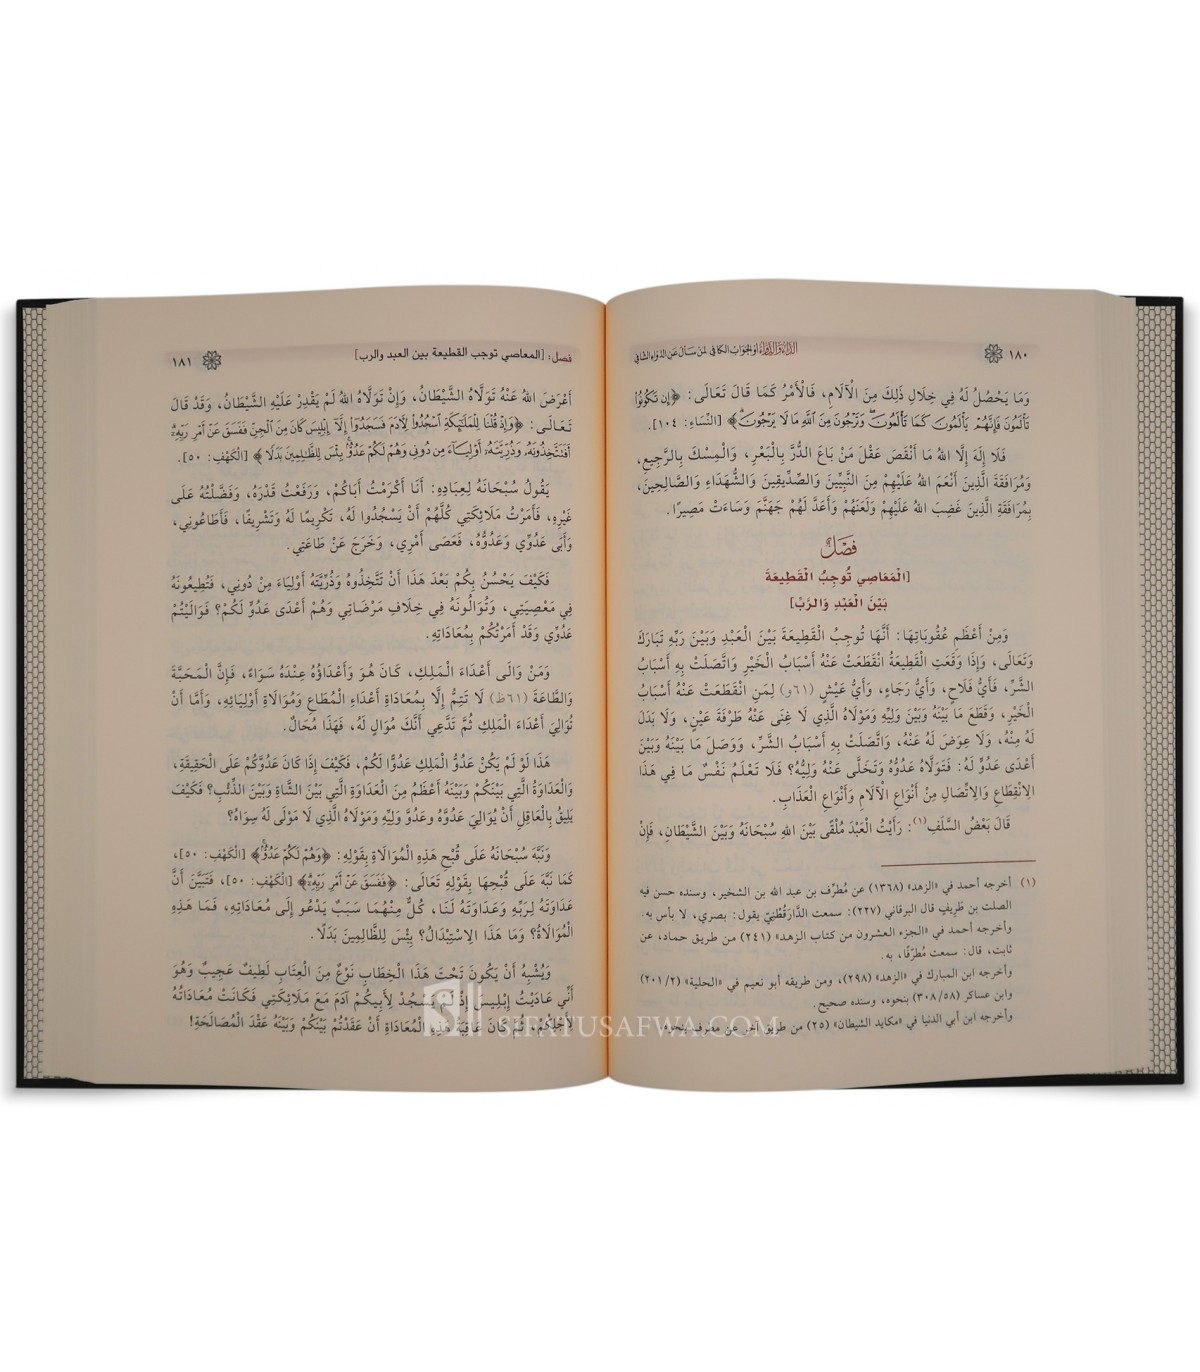 ١٨٠ الداء والدواء أو الجواب الكافي لمن سأل عن الدواء الشافي
وَمَا يَحْصُلُ لَهُ فِي خِلَالِ ذَلِكَ مِنَ الْآلَامِ، فَالْأَمْرُ كَمَا قَالَ تَعَالَى: ﴿إِن تَكُونُوا۟
تَأْلَمُونَ فَإِنَّهُمْ يَأْلَمُونَ كَمَا تَأْلَمُونَ ۖ وَتَرْجُونَ مِنَ ٱللَّهِ مَا لَا يَرْجُونَ ۗ﴾ [النِّسَاءِ: ١٠٤].
فَلَا إِلَهَ إِلَّا اللهُ مَا أَنْقَصَ عَقْلَ مَنْ بَاعَ الدُّرَّ بِالْبَعْرِ، وَالْمِسْكَ بِالرَّجِيعِ،
وَمُرَافَقَةَ الَّذِينَ أَنْعَمَ اللهُ عَلَيْهِمْ مِنَ النَّبِيِّينَ وَالصِّدِّيقِينَ وَالشُّهَدَاءِ وَالصَّالِحِينَ،
بِمُرَافَقَةِ الَّذِينَ غَضِبَ اللهُ عَلَيْهِمْ وَلَعَنَهُمْ وَأَعَدَّ لَهُمْ جَهَنَّمَ وَسَاءَتْ مَصِيرًا.
فَصْلٌ
[الْمَعَاصِي تُوجِبُ الْقَطِيعَةَ
بَيْنَ الْعَبْدِ وَالرَّبِّ]
وَمِنْ أَعْظَمِ عُقُوبَاتِهَا: أَنَّهَا تُوجِبُ الْقَطِيعَةَ بَيْنَ الْعَبْدِ وَبَيْنَ رَبِّهِ تَبَارَكَ
وَتَعَالَى، وَإِذَا وَقَعَتِ الْقَطِيعَةُ انْقَطَعَتْ عَنْهُ أَسْبَابُ الْخَيْرِ وَاتَّصَلَتْ بِهِ أَسْبَابُ
الشَّرِّ، فَأَيُّ فَلَاحٍ، وَأَيُّ رَجَاءٍ، وَأَيُّ عَيْشٍ (٦١و) لِمَنِ انْقَطَعَتْ عَنْهُ أَسْبَابُ
الْخَيْرِ، وَقَطَعَ مَا بَيْنَهُ وَبَيْنَ وَلِيِّهِ وَمَوْلَاهُ الَّذِي لَا غِنَى عَنْهُ طَرْفَةَ عَيْنٍ، وَلَا بَدَلَ
لَهُ مِنْهُ، وَلَا عِوَضَ لَهُ عَنْهُ، وَاتَّصَلَتْ بِهِ أَسْبَابُ الشَّرِّ، وَوَصَلَ مَا بَيْنَهُ وَبَيْنَ
أَعْدَى عَدُوٍّ لَهُ: فَتَوَلَّاهُ عَدُوُّهُ وَتَخَلَّى عَنْهُ وَلِيُّهُ؟ فَلَا تَعْلَمُ نَفْسٌ مَا فِي هَذَا
الِانْقِطَاعِ وَالِاتِّصَالِ مِنْ أَنْوَاعِ الْآلَامِ وَأَنْوَاعِ الْعَذَابِ.
قَالَ بَعْضُ السَّلَفِ(١): رَأَيْتُ الْعَبْدَ مُلْقًى بَيْنَ اللهِ سُبْحَانَهُ وَبَيْنَ الشَّيْطَانِ، فَإِنْ
(١) أخرجه أحمد في «الزهد» (١٣٦٨) عن مُطرِّف بن عبد الله بن الشخير، وسنده حسن فيه
الصلت بن طَرِيفٍ قال البرقاني (٢٢٧): سمعت الدَّارَقُطْنِيّ يقول: بصري، لا بأس به.
وأخرجه أحمد في «الجزء العشرون من كتاب الزهد» (٢٤١) من طريق حماد، عن
ثابت، قال: سمعت مُطرِّفًا، به.
وأخرجه ابن المبارك في «الزهد» (٢٩٨)، ومن طريقه أبو نعيم في «الحلية» (٢٠١/٢)
وابن عساكر (٣٠٨/٥٨) بنحوه، وسنده صحيح.
وأخرجه ابن أبي الدنيا في «مكايد الشيطان» (٢٥) من طريق آخر عن مطرف بنحوه.
فصل: [المعاصي توجب القطيعة بين العبد والرب] ١٨١
أَعْرَضَ اللهُ عَنْهُ تَوَلَّاهُ الشَّيْطَانُ، وَإِنْ تَوَلَّاهُ اللهُ لَمْ يَقْدِرْ عَلَيْهِ الشَّيْطَانُ، وَقَدْ قَالَ
تَعَالَى: ﴿وَإِذْ قُلْنَا لِلْمَلَٰٓئِكَةِ ٱسْجُدُوا۟ لِءَادَمَ فَسَجَدُوٓا۟ إِلَّآ إِبْلِيسَ كَانَ مِنَ ٱلْجِنِّ فَفَسَقَ عَنْ أَمْرِ رَبِّهِۦٓ ۗ
أَفَتَتَّخِذُونَهُۥ وَذُرِّيَّتَهُۥٓ أَوْلِيَآءَ مِن دُونِى وَهُمْ لَكُمْ عَدُوٌّۢ ۚ بِئْسَ لِلظَّٰلِمِينَ بَدَلًا﴾ [الْكَهْفِ: ٥٠].
يَقُولُ سُبْحَانَهُ لِعِبَادِهِ: أَنَا أَكْرَمْتُ أَبَاكُمْ، وَرَفَعْتُ قَدْرَهُ، وَفَضَّلْتُهُ عَلَى
غَيْرِهِ، فَأَمَرْتُ مَلَائِكَتِي كُلَّهُمْ أَنْ يَسْجُدُوا لَهُ، تَكْرِيمًا لَهُ وَتَشْرِيفًا، فَأَطَاعُونِي،
وَأَبَى عَدُوِّي وَعَدُوُّهُ، فَعَصَى أَمْرِي، وَخَرَجَ عَنْ طَاعَتِي.
فَكَيْفَ يَحْسُنُ بِكُمْ بَعْدَ هَذَا أَنْ تَتَّخِذُوهُ وَذُرِّيَّتَهُ أَوْلِيَاءَ مِنْ دُونِي، فَتُطِيعُونَهُ
فِي مَعْصِيَتِي، وَتُوَالُونَهُ فِي خِلَافِ مَرْضَاتِي وَهُمْ أَعْدَى عَدُوٍّ لَكُمْ؟ فَوَالَيْتُمْ
عَدُوِّي وَقَدْ أَمَرْتُكُمْ بِمُعَادَاتِهِ.
وَمَنْ وَالَى أَعْدَاءَ الْمَلِكِ، كَانَ هُوَ وَأَعْدَاؤُهُ عِنْدَهُ سَوَاءً، فَإِنَّ الْمَحَبَّةَ
وَالطَّاعَةَ (٦١ظ) لَا تَتِمُّ إِلَّا بِمُعَادَاةِ أَعْدَاءِ الْمُطَاعِ وَمُوَالَاةِ أَوْلِيَائِهِ، وَأَمَّا أَنْ
تُوَالِيَ أَعْدَاءَ الْمَلِكِ ثُمَّ تَدَّعِي أَنَّكَ مُوَالٍ لَهُ، فَهَذَا مُحَالٌ.
هَذَا لَوْ لَمْ يَكُنْ عَدُوُّ الْمَلِكِ عَدُوًّا لَكُمْ، فَكَيْفَ إِذَا كَانَ عَدُوَّكُمْ عَلَى الْحَقِيقَةِ،
وَالْعَدَاوَةُ الَّتِي بَيْنَكُمْ وَبَيْنَهُ أَعْظَمُ مِنَ الْعَدَاوَةِ الَّتِي بَيْنَ الشَّاةِ وَبَيْنَ الذِّئْبِ؟ فَكَيْفَ
يَلِيقُ بِالْعَاقِلِ أَنْ يُوَالِيَ عَدُوَّهُ وَعَدُوَّ وَلِيِّهِ وَمَوْلَاهُ الَّذِي لَا مَوْلَى لَهُ سِوَاهُ؟
وَنَبَّهَ سُبْحَانَهُ عَلَى قُبْحِ هَذِهِ الْمُوَالَاةِ بِقَوْلِهِ: ﴿وَهُمْ لَكُمْ عَدُوٌّۢ ۚ﴾ [الْكَهْفِ: ٥٠]،
كَمَا نَبَّهَ عَلَى قُبْحِهَا بِقَوْلِهِ تَعَالَى: ﴿فَفَسَقَ عَنْ أَمْرِ رَبِّهِۦٓ ۗ﴾ [الْكَهْفِ: ٥٠]، فَتَبَيَّنَ أَنَّ
عَدَاوَتَهُ لِرَبِّهِ وَعَدَاوَتَهُ لَنَا، كُلٌّ مِنْهُمَا سَبَبٌ يَدْعُو إِلَى مُعَادَاتِهِ، فَمَا هَذِهِ
الْمُوَالَاةُ؟ وَمَا هَذَا الِاسْتِبْدَالُ؟ بِئْسَ لِلظَّالِمِينَ بَدَلًا.
وَيُشْبِهُ أَنْ يَكُونَ تَحْتَ هَذَا الْخِطَابِ نَوْعٌ مِنَ الْعِتَابِ لَطِيفٌ عَجِيبٌ وَهُوَ
أَنِّي عَادَيْتُ إِبْلِيسَ إِذْ لَمْ يَسْجُدْ لِأَبِيكُمْ آدَمَ مَعَ مَلَائِكَتِي فَكَانَتْ مُعَادَاتُهُ
لِأَجْلِكُمْ، ثُمَّ كَانَ عَاقِبَةُ هَذِهِ الْمُعَادَاةِ أَنْ عَقَدْتُمْ بَيْنَكُمْ وَبَيْنَهُ عَقْدَ الْمُصَالَحَةِ!
SIFATUSAFWA.COM